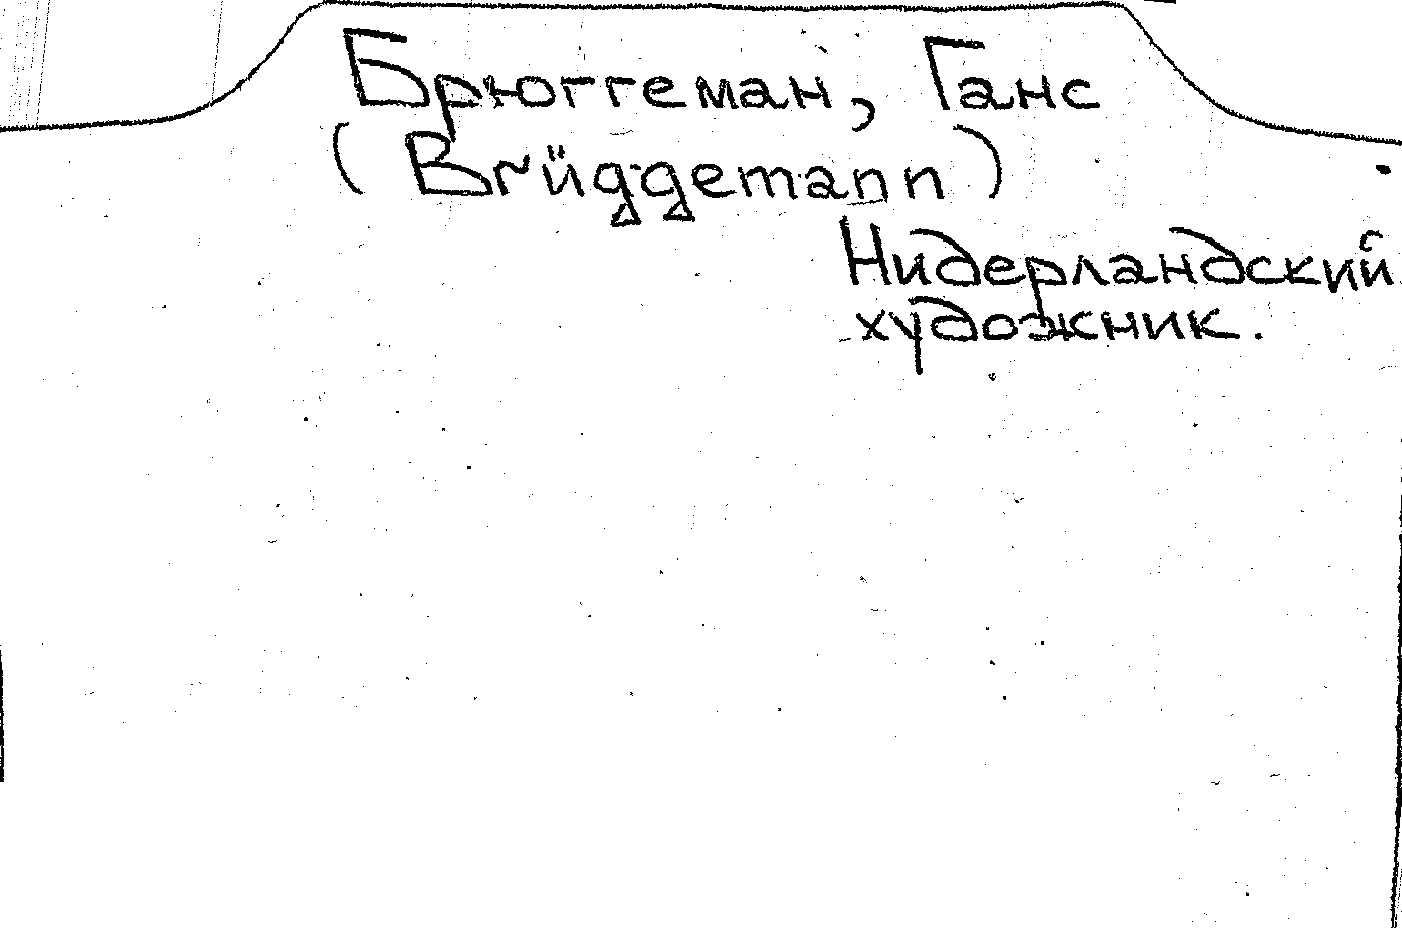 Брюггеман, Ганс
(Brüggemann)
Нидерландский
художник.